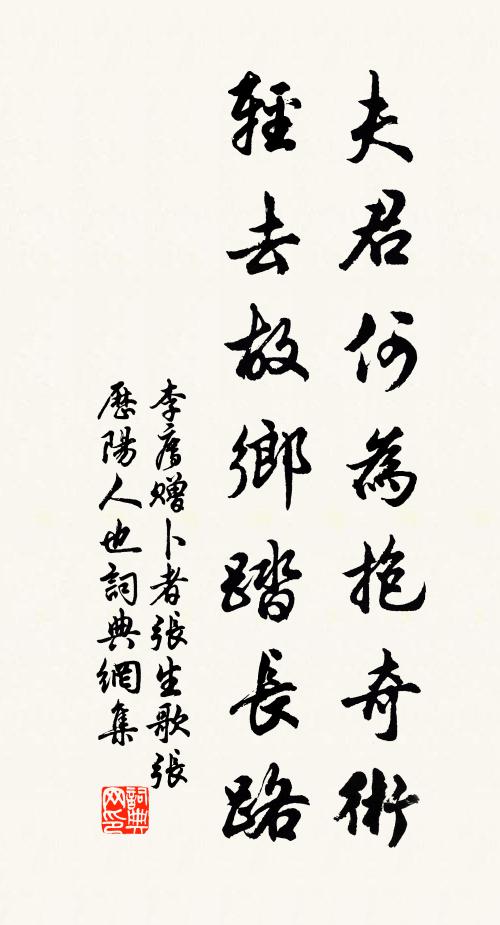 夫君何為抱奇術
輕去故鄉踏長路
李廌贈卜者張生歌張
歷陽人也詞典網集
詞典网印